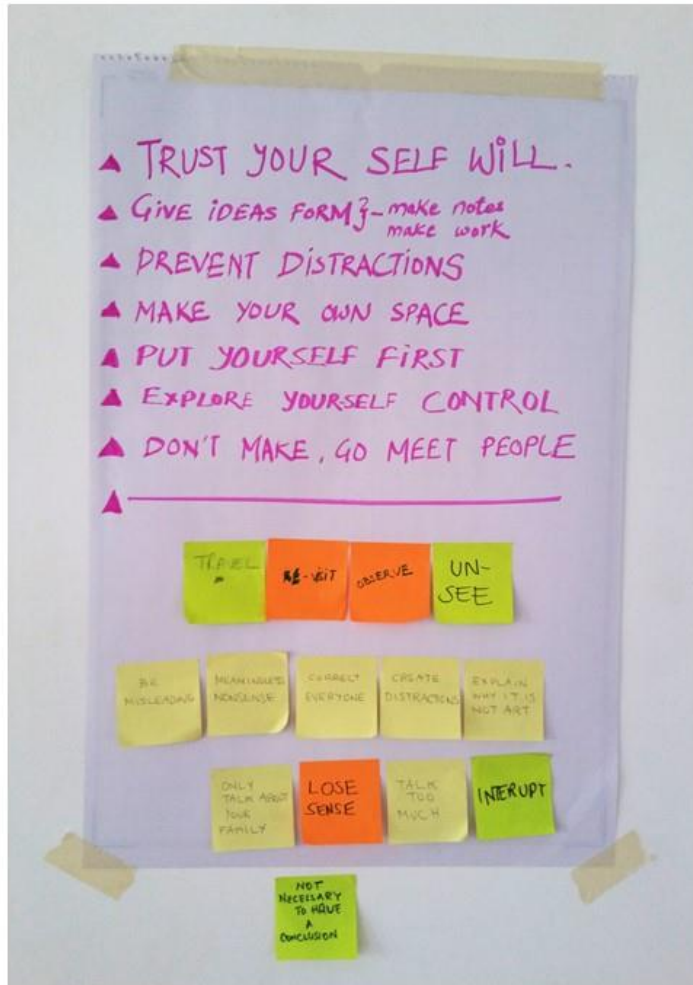 ▲ TRUST YOUR SELF WILL.
▲ GIVE IDEAS FORM}-make notes
make work
▲ PREVENT DISTRACTIONS
▲ MAKE YOUR OWN SPACE
▲ PUT YOURSELF FIRST
▲ EXPLORE YOURSELF CONTROL
▲ DON'T MAKE, GO MEET PEOPLE
TRAVEL
RE-VISIT
OBSERVE
UN-
SEE
BE
MISLEADING
MEANINGLESS
NONSENSE
CORRECT
EVERYONE
CREATE
DISTRACTIONS
EXPLAIN
WHY IT IS
NOT ART
ONLY
TALK ABOUT
YOUR
FAMILY
LOSE
SENSE
TALK
TOO
MUCH
INTERUPT
NOT
NECESSARY
TO HAVE
A
CONCLUSION